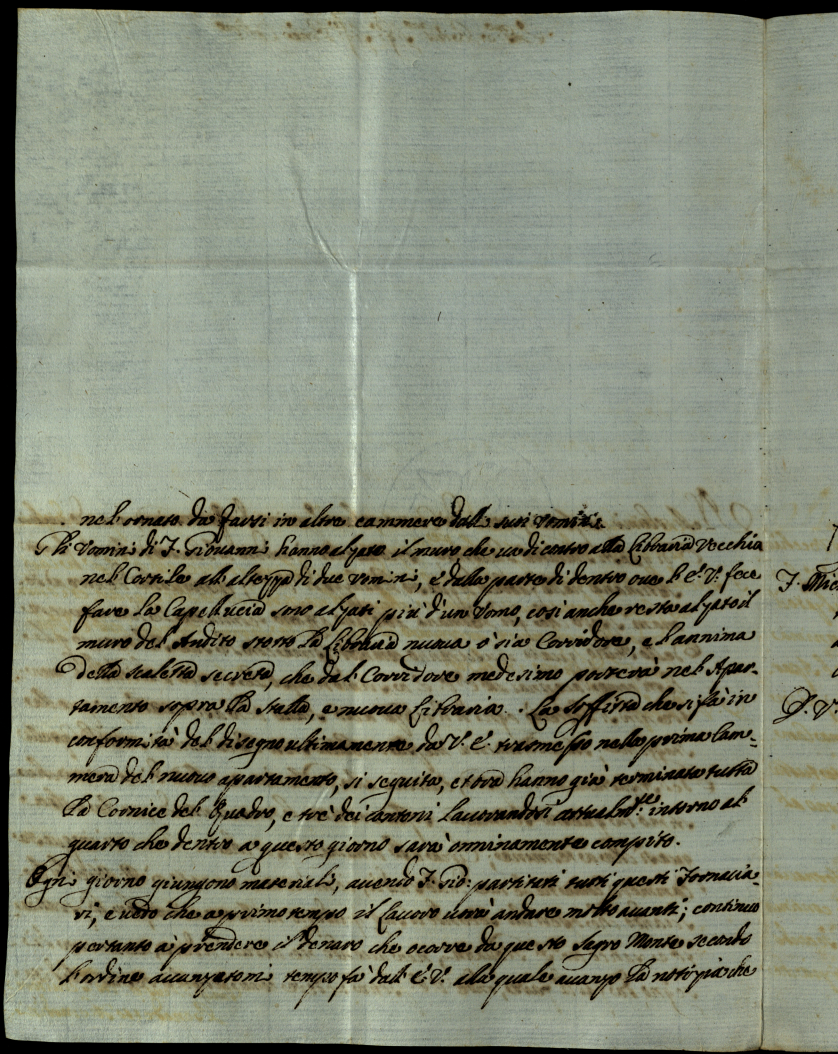 nel ornato da farsi in altre cammere dalli suoi uomini.
Gli Uomini di F. Giovanni hanno alzato il muro che va di contro alla Libraria Vecchia
nel Cortile all'altezza di due uomini, e dalla parte di dentro ove l'E. V. fece
fare la Capelluccia sono alzati più d'un Uomo, così anche resta alzato il
muro del Andito sotto la Libraria nuova ò sia Corridore, e l'annima
della scaletta secreta, che dal Corridore medesimo porterà nel Apar-
tamento sopra la Stalla, e nuova Libraria. La Soffitta che si fà in
conformità del disegno ultimamente da V. E. trasmesso nella prima Cam-
mera del nuovo apartamento, si seguita, et ora hanno già terminata tutta
la Cornice del Quadro, e trè dei cantoni lavorandosi attualm.te intorno al
quarto che dentro a questo giorno sarà onninamente compito.
Ogni giorno giungono materiali, avendo F. Gio: partiti tutti questi Fornacia-
ri, e vedo che a primo tempo il lavoro vorrà andare molto avanti; continuo
pertanto à prendere il denaro che ocorre da questo Sagro Monte secondo
l'ordine avvanzatomi tempo fà dall'E. V. alla quale avanzo la notizia che
F. Mic